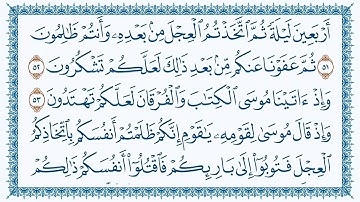 أَرْبَعِينَ لَيْلَةً ثُمَّ ٱتَّخَذتُّمُ ٱلْعِجْلَ مِنۢ بَعْدِهِۦ وَأَنتُمْ ظَٰلِمُونَ
٥١ ثُمَّ عَفَوْنَا عَنكُم مِّنۢ بَعْدِ ذَٰلِكَ لَعَلَّكُمْ تَشْكُرُونَ ٥٢
وَإِذْ ءَاتَيْنَا مُوسَى ٱلْكِتَٰبَ وَٱلْفُرْقَانَ لَعَلَّكُمْ تَهْتَدُونَ ٥٣
وَإِذْ قَالَ مُوسَىٰ لِقَوْمِهِۦ يَٰقَوْمِ إِنَّكُمْ ظَلَمْتُمْ أَنفُسَكُم بِٱتِّخَاذِكُمُ
ٱلْعِجْلَ فَتُوبُوٓا۟ إِلَىٰ بَارِئِكُمْ فَٱقْتُلُوٓا۟ أَنفُسَكُمْ ذَٰلِكُمْ